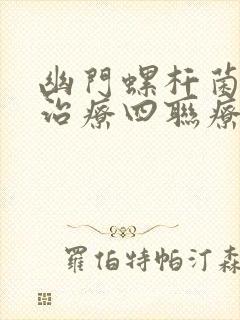 幽門螺杆菌
治療四聯療
羅伯特帕汀森